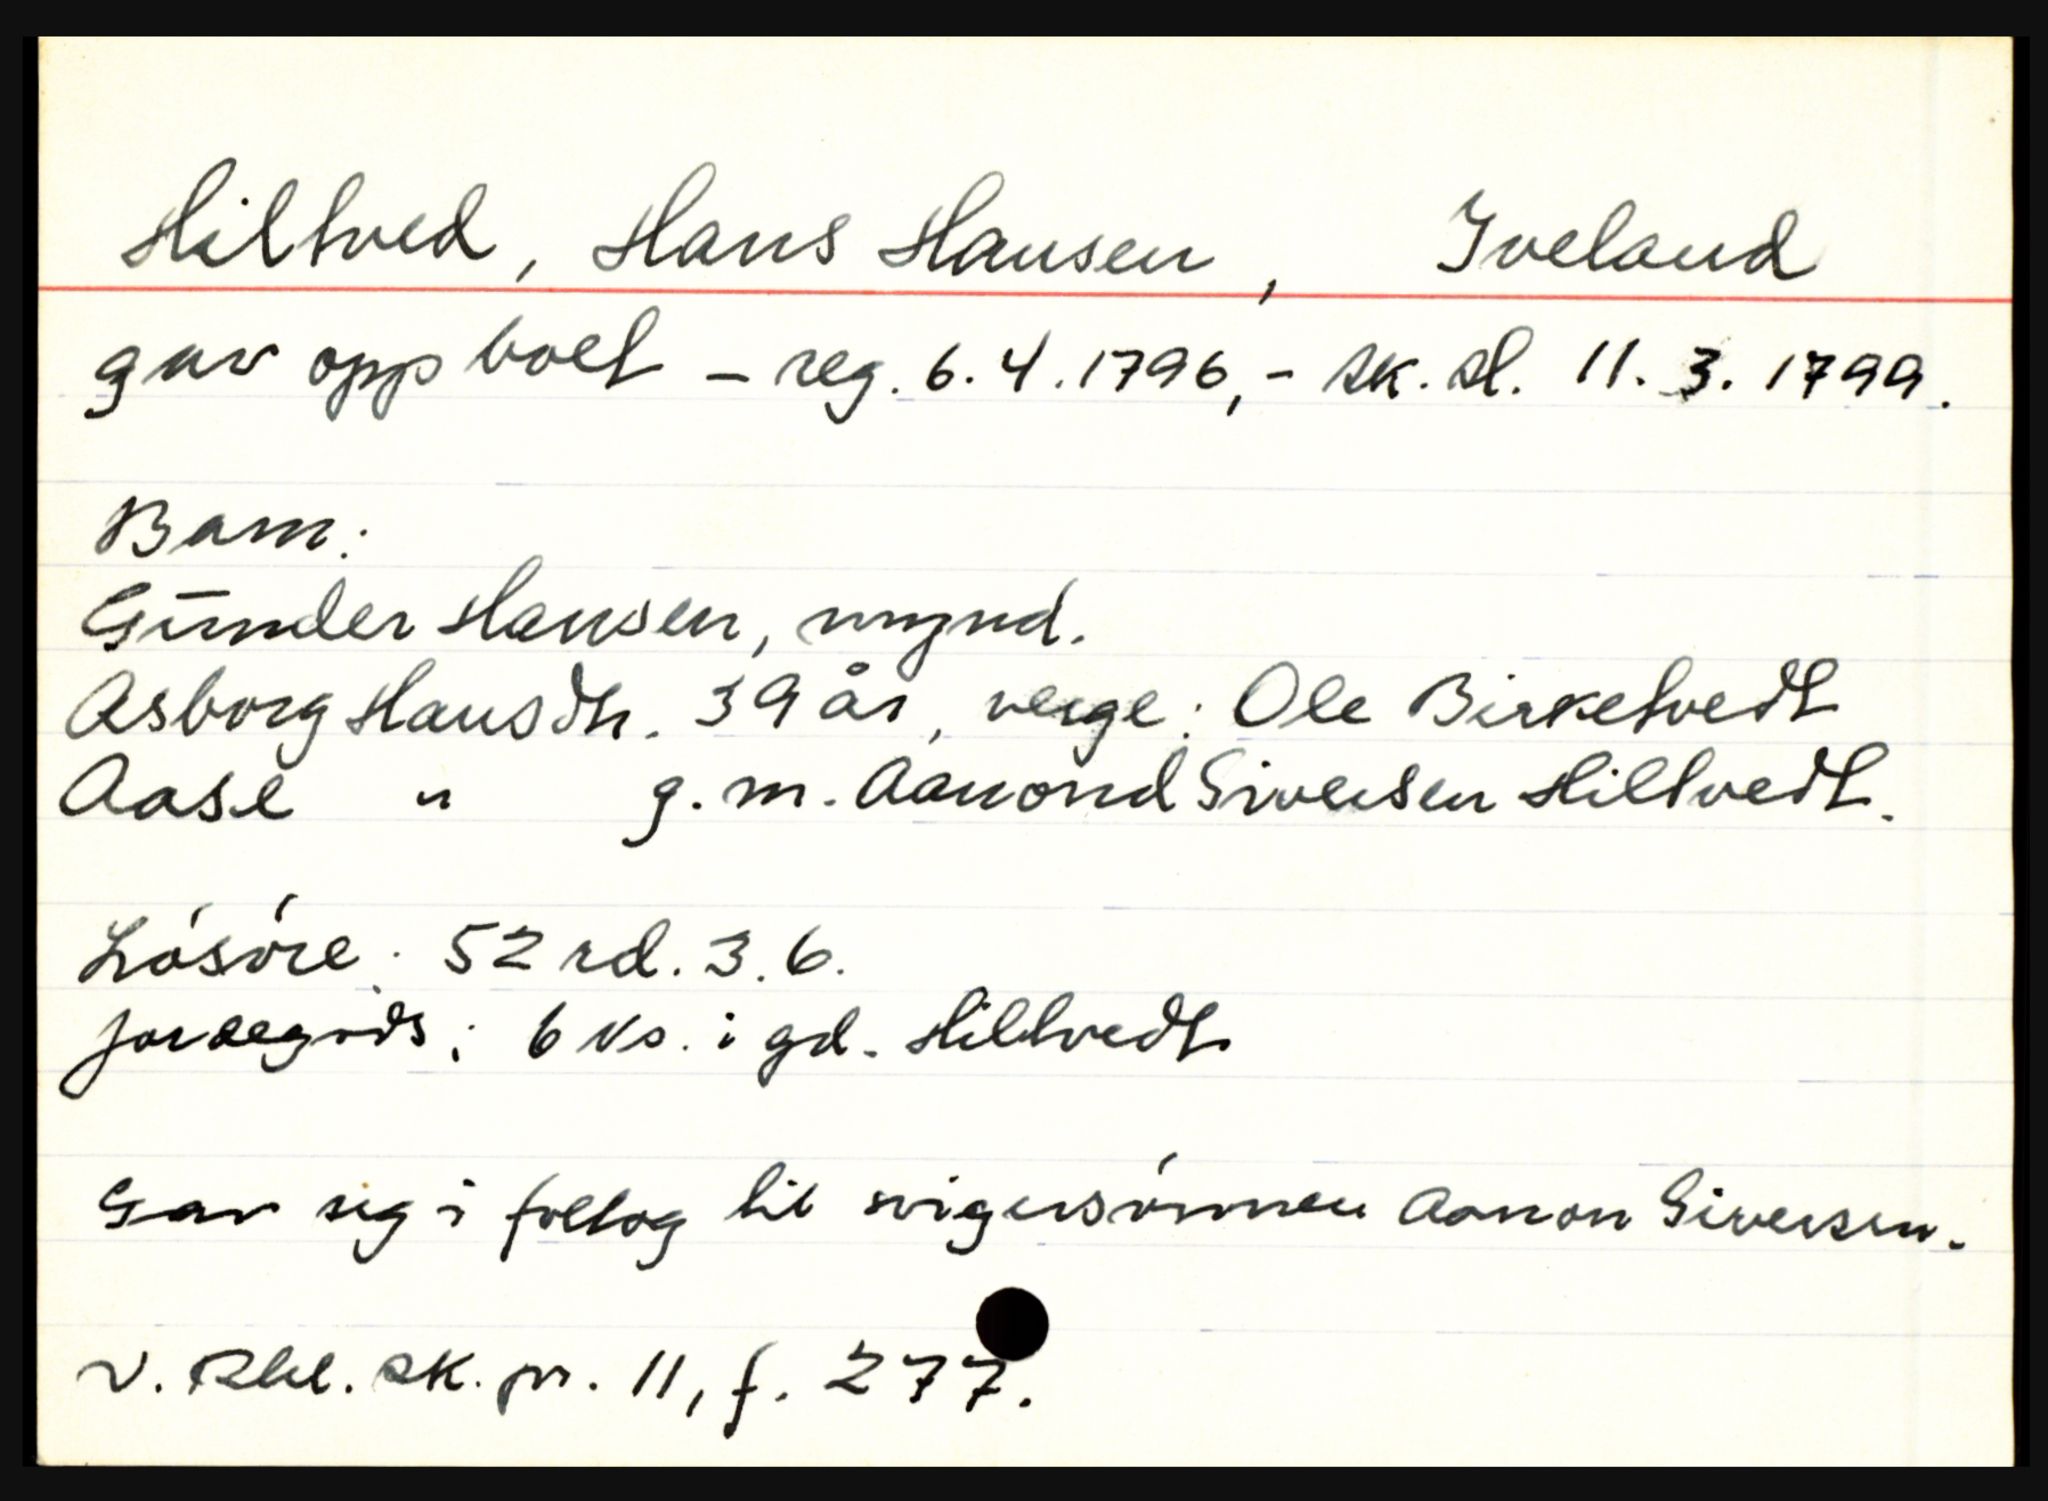 Hiltved, Hans Hansen, Iveland
gav opp boet - reg. 6.4.1796, - sk. sl. 11. 3. 1799.
Barn:
Gunder Hansen, mynd.
Asborg Hansdtr. 39 år, verge: Ole Birketvedt
Aase " g. m. Aanond Siversen Hiltvedt.
Lösöre: 52 rd. 3. 6.
jordegods: 6 ks. i gd. Hiltvedt
Gav seg i follog til svigersönnen Aanon Siversen.
V. Rbl. sk. pr. 11, f. 277.